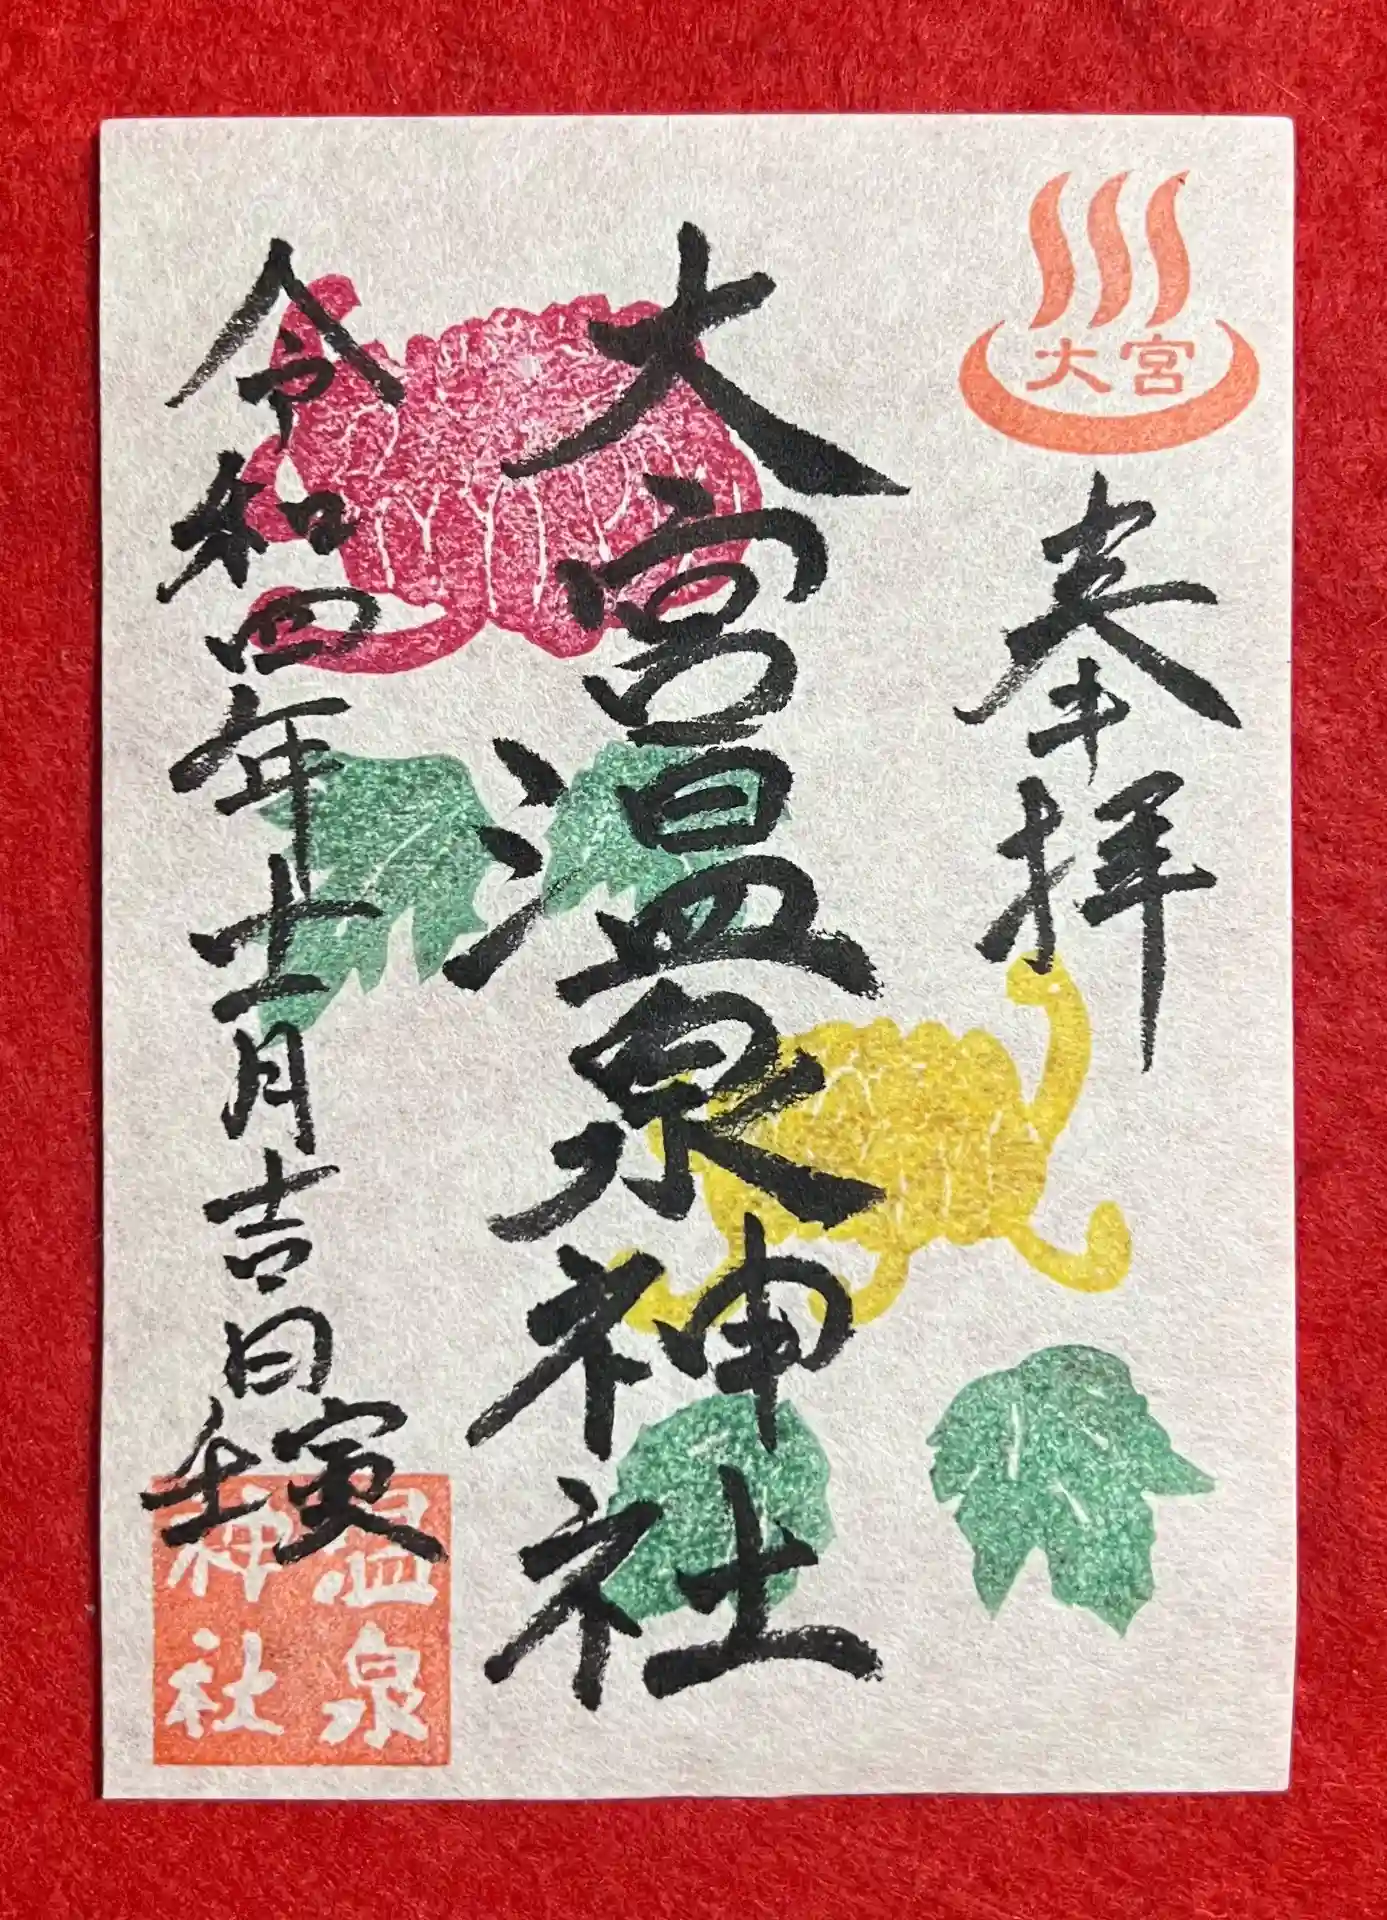 大宮
奉拝
大宮温泉神社
令和四年十一月吉日
寅年
温泉
神社